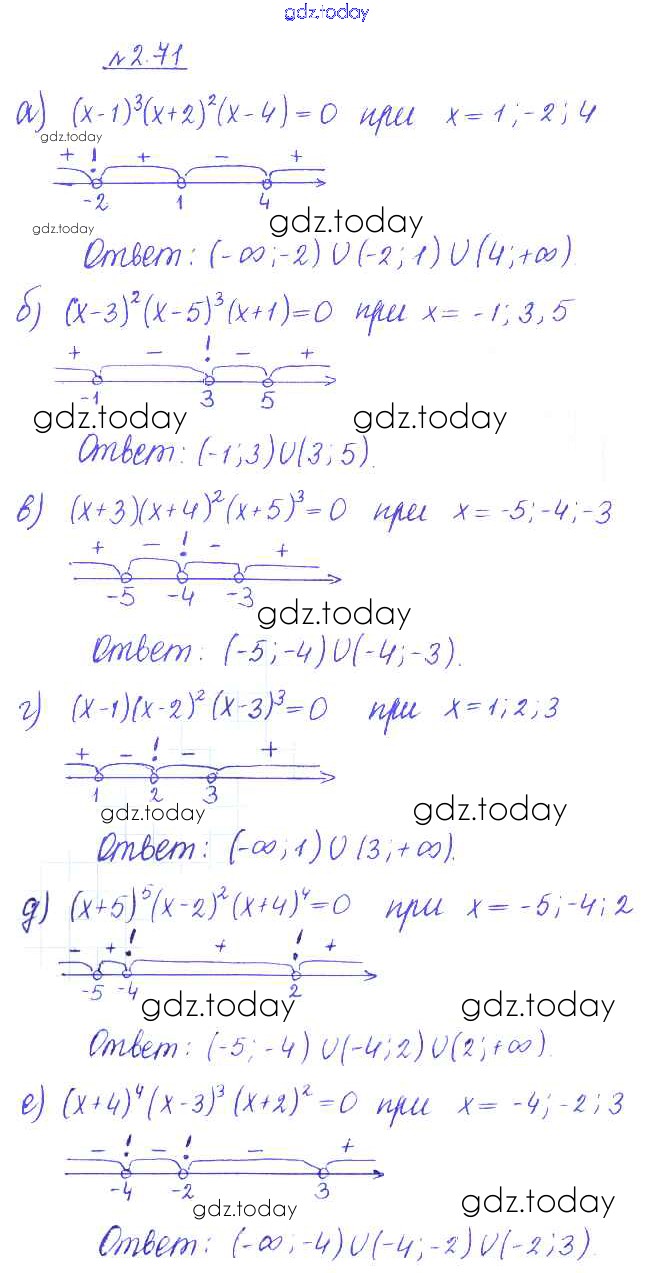 gdz.today
№2.71
а) (x-1)³(x+2)²(x-4)=0 при x=1;-2;4
gdz.today
+ ! + - +
-2 1 4
gdz.today gdz.today
Ответ: (-∞;-2)∪(-2;1)∪(4;+∞)
б) (x-3)²(x-5)³(x+1)=0 при x=-1;3,5
+ - ! - +
-1 3 5
gdz.today gdz.today
Ответ: (-1;3)∪(3;5).
в) (x+3)(x+4)²(x+5)³=0 при x=-5;-4;-3
+ - ! - +
-5 -4 -3
gdz.today
Ответ: (-5;-4)∪(-4;-3).
г) (x-1)(x-2)²(x-3)³=0 при x=1;2;3
+ - ! - +
1 2 3
gdz.today gdz.today
Ответ: (-∞;1)∪(3;+∞).
д) (x+5)⁵(x-2)²(x+4)⁴=0 при x=-5;-4;2
- + ! + ! +
-5 -4 2
gdz.today gdz.today
Ответ: (-5;-4)∪(-4;2)∪(2;+∞).
е) (x+4)⁴(x-3)³(x+2)²=0 при x=-4;-2;3
- ! - ! - +
-4 -2 3
gdz.today gdz.today
Ответ: (-∞;-4)∪(-4;-2)∪(-2;3).